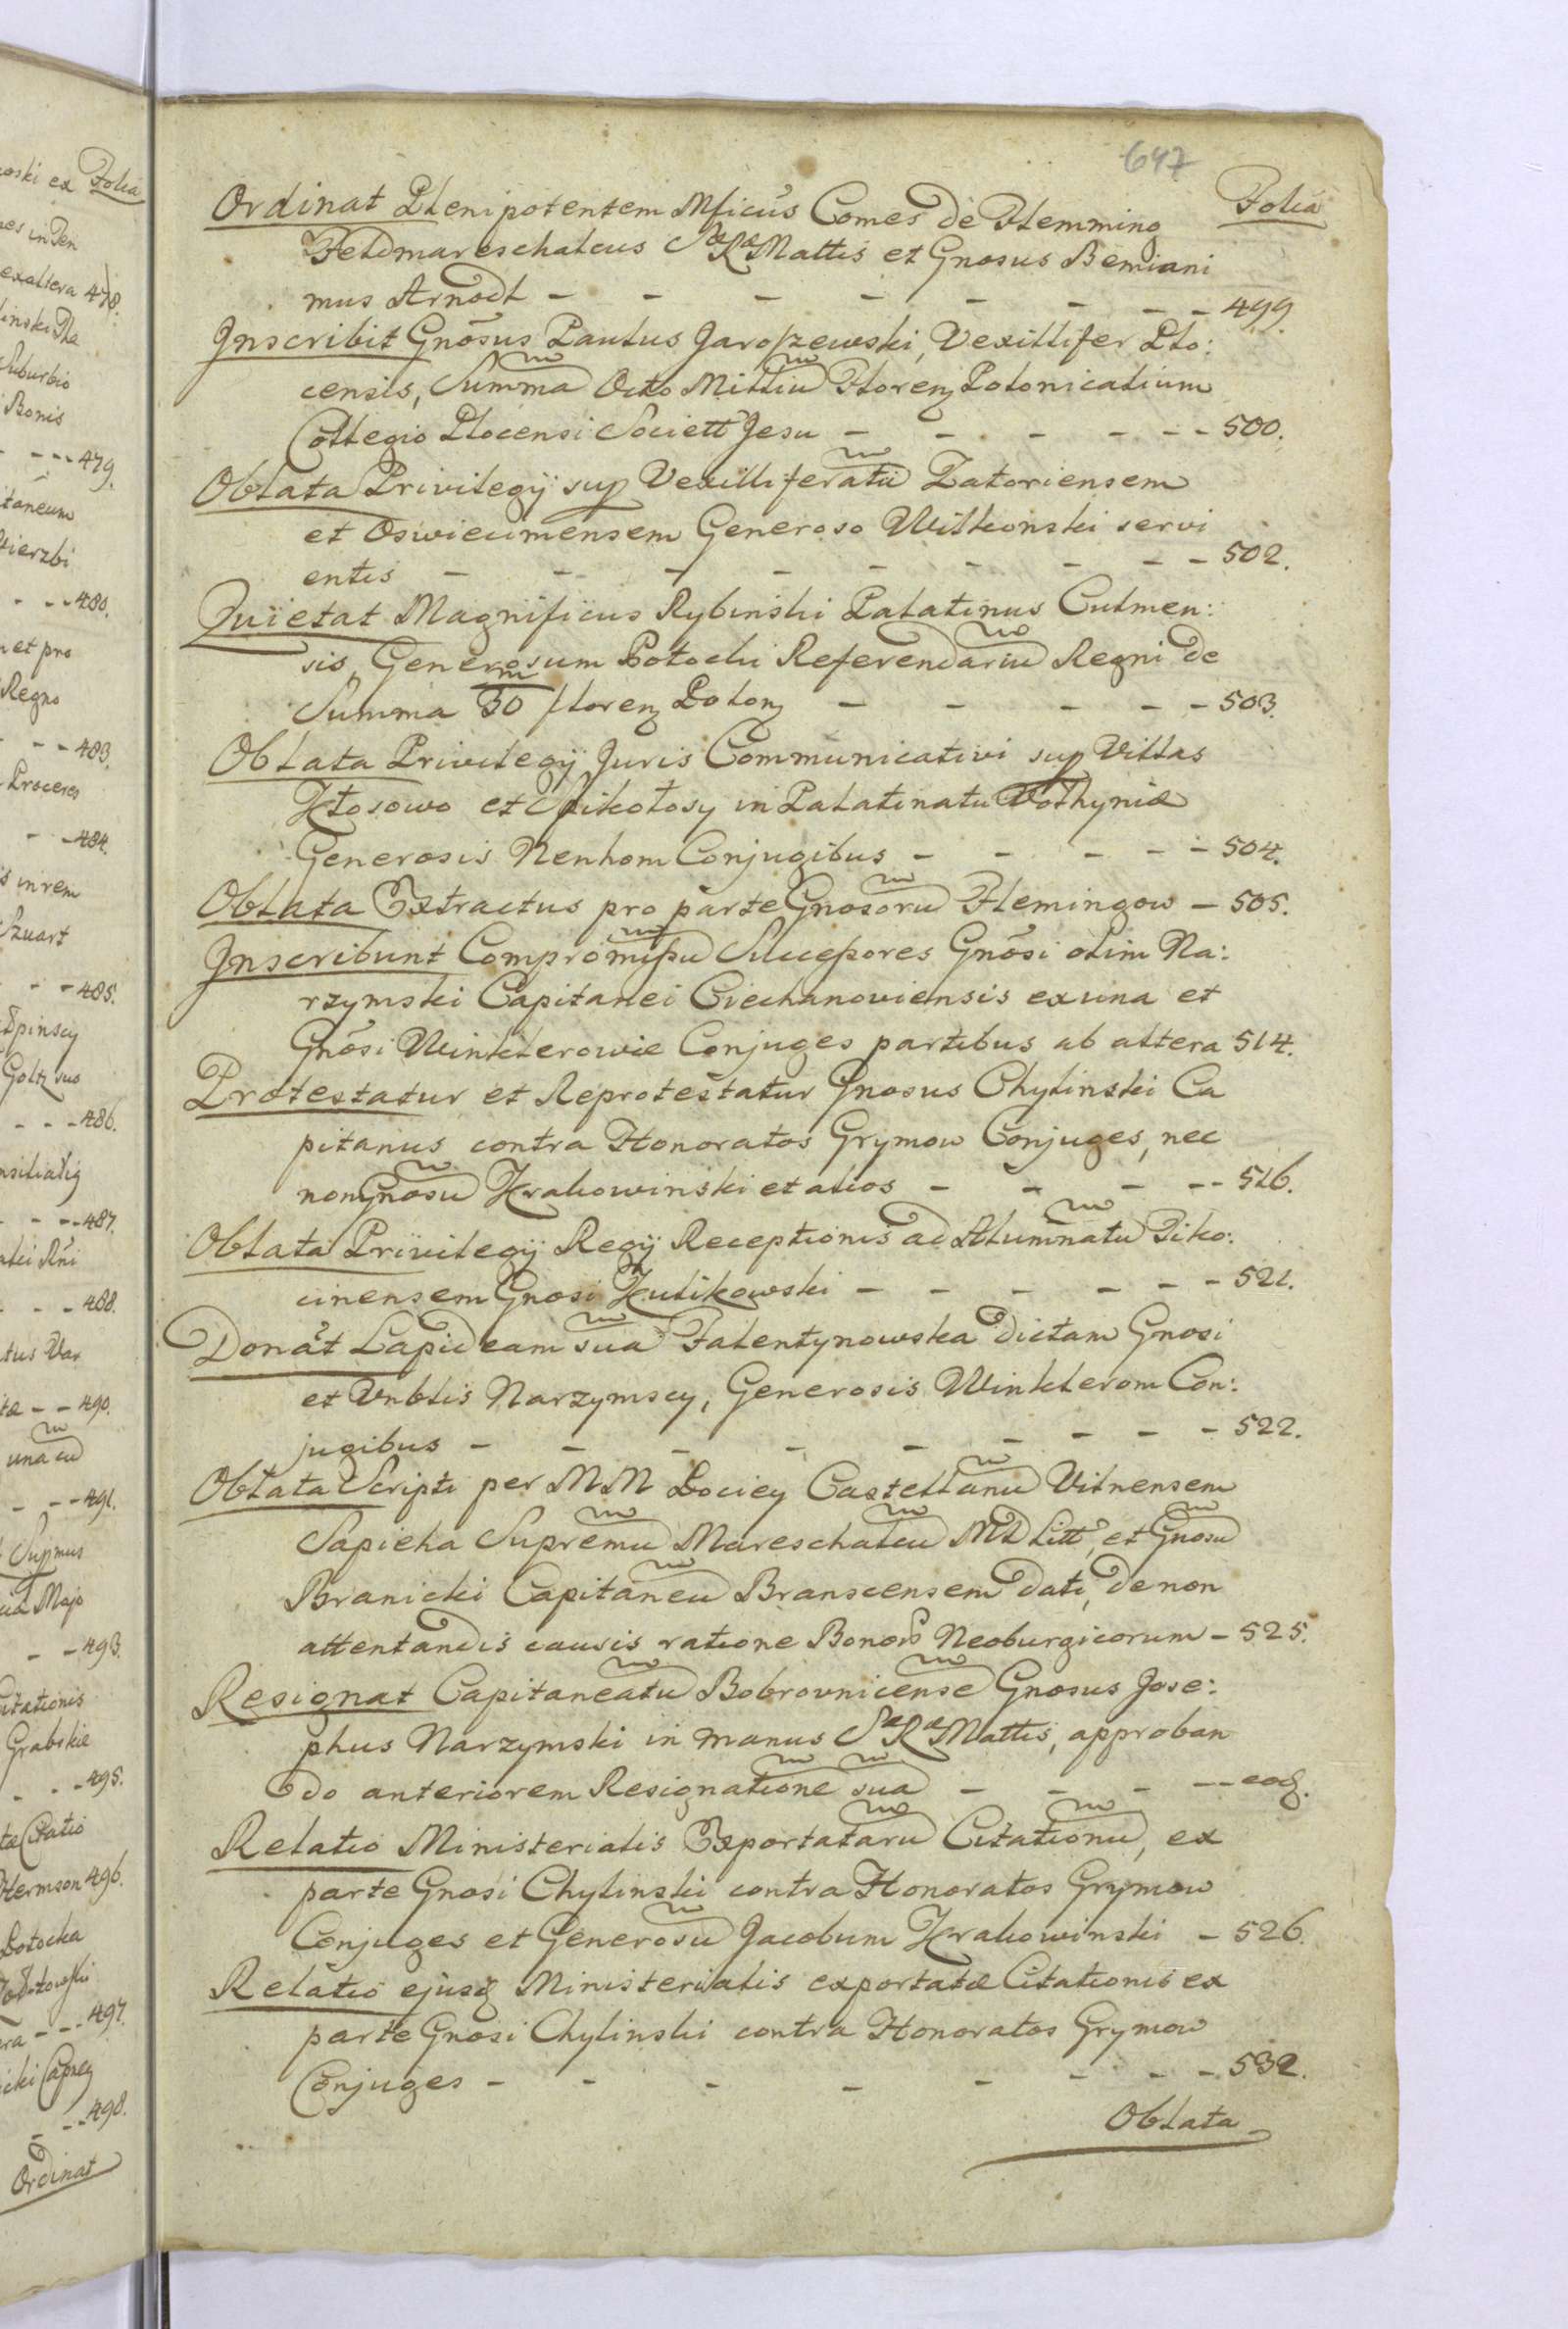 647
Folia
Ordinat Plenipotentem Mficus Comes de Flemming
Feldmareschalcus SæRæMattis et Gnosus Bemiani
mus Arnodt - - - - - - - - 499.
Inscribit Gnosus Paulus Jaroszewski, Vexillifer Plo:
censis, Summa Octo Milliu Floren Polonicalium
Collegio Plocensi Societt Jesu - - - - - - 500.
Oblata Privilegij sup Vexilliferatu Zatoriensem
et Oswiecimensem Generoso Wilkonski servi
entis - - - - - - - - - 502.
Quietat Magnificus Rybinski Palatinus Culmen:
sis, Generosum Potocki Referendariu Regni de
Summa 30 m floren Polon - - - - - 503.
Oblata Privilegij Juris Communicativi sup Villas
Kłosowo et Spikołosy in Palatinatu Volhyniæ
Generosis Nenhom Conjugibus - - - - - 504.
Oblata Extractus pro parte Gnosoru Flemingow - 505.
Inscribunt Compromissu Successores Gnosi olim Na:
rzymski Capitanei Ciechanoviensis ex una et
Gnosi Winklerowie Conjuges partibus ab altera 514.
Protestatur et Reprotestatur Gnosus Chylinski Ca
pitanus contra Honoratos Grymow Conjuges, nec
non Gnosu Krakowinski et alios - - - - - 516.
Oblata Privilegij Regij Receptionis ad Alumnatu Tiko:
cinensem Gnosi Kulikowski - - - - - - 521.
Donat Lapideam sua Falentynowska dictam Gnosi
et Vnblis Narzymscy, Generosis Winklerom Con:
jugibus - - - - - - - - - 522.
Oblata Scripti per MM Pociey Castellanu Vilnensem
Sapieha Supremu Mareschalcu MD Litt, et Gnosu
Branicki Capitaneu Branscensem dati, de non
attentandis causis ratione Bonor Neoburgicorum - 525.
Resignat Capitaneatu Bobrovnicense Gnosus Jose:
phus Narzymski in manus SæRæMattis, approban
do anteriorem Resignatione sua - - - - - eod.
Relatio Ministerialis Exportataru Citationu, ex
parte Gnosi Chylinski contra Honoratos Grymow
Conjuges et Generosu Jacobum Krakowinski - 526.
Relatio ejusd Ministerialis exportatæ Citationis ex
parte Gnosi Chylinski contra Honoratos Grymow
Conjuges - - - - - - - - 532.
Oblata